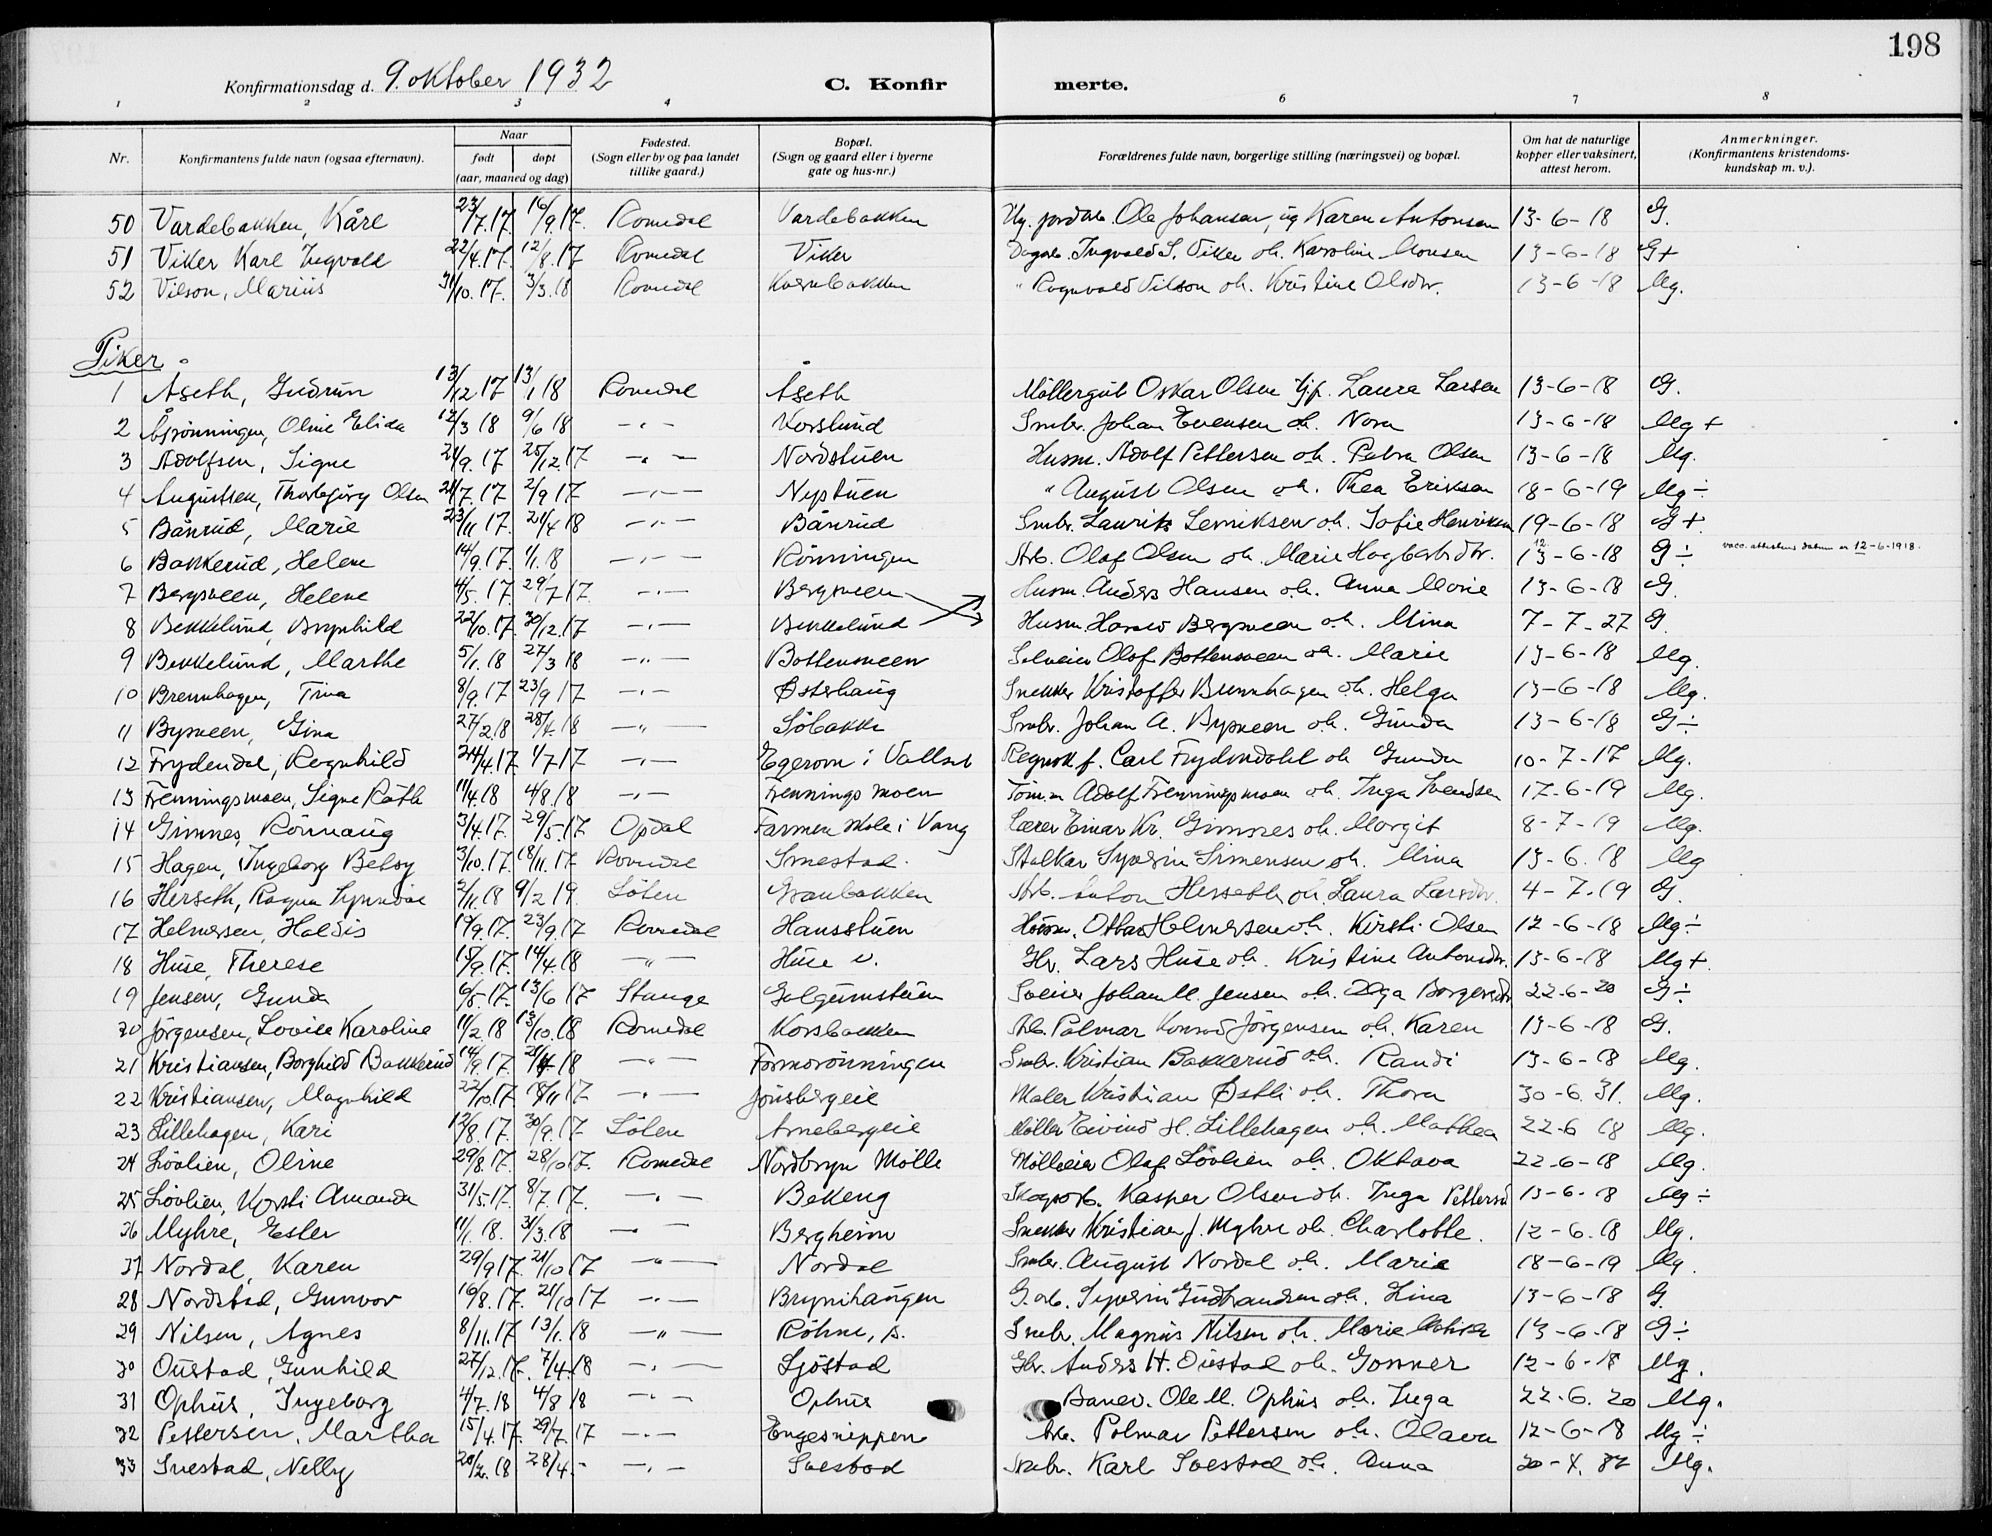 198
Konfirmationsdag d. 9. oktober 1932 C. Konfir merte.
1 2 3 4 6 7 8
Nr. Konfirmantens fulde navn (ogsaa efternavn). Naar født døpt (aar, maaned og dag) Fødested. (Sogn eller by og paa landet tillike gaard.) Bopæl. (Sogn og gaard eller i byerne gate og hus-nr.) Forældrenes fulde navn, borgerlige stilling (næringsvei) og bopæl. Om hat de naturlige kopper eller vaksinert, attest herom. Anmerkninger. (Konfirmantens kristendoms-kundskap m. v.).
50 Vardebakken, Kåre 23/7.17. 16/9.17. Romedal Vardebakken Ole Johansen, og Karen Antonsen 13-6-18 G.
51 Viker Karl Ingvald 22/4.17. 12/8.17 Romedal Viker Dagarb. Ingvald S. Viker oh. Karoline Monsen 13-6-18 G+
52 Vilson, Marius 31/10.17. 3/3.18 Romedal Kvernbakken " Rognvald Vilson oh. Kristine Olsdtr. 13-6-18 Mg.
Piker
1 Åseth, Gudrun 13/12 17 13/1 18 Romedal Åseth Möllergut Oskar Olsen Laura Larsen 13-6-18 G.
2 Åsrönningen, Oline Elida 12/3 18 9/6 18 -"- Korslund Smbr. Johan Evensen oh. Nora 13-6-18 Mg+
3 Adolfsen, Signe 21/9.17 25/12.17 -"- Nordstuen Husm. Adolf Pettersen oh. Petra Olsen 13-6-18 Mg.
4 Augustsen, Thorbjörg Olsen 21/7.17 2/9 17 -"- Nystuen " August Olsen oh. Thea Eriksen 18-6-19 Mg÷
5 Bånrud, Marie 23/11 17. 21/4 18 -"- Bånrud Smbr. Laurits Lenriksen oh. Sofie Henriksen 19-6-18 G+
6 Bakkerud, Helene 14/9.17. 1/1.18 -"- Rönningen Arb. Olaf Olsen oh. Marie Hagbartsdtr. 13-6-18 G÷ vacc. attestens datum er 12-6-1918.
7 Bergsveen, Helene 4/5.17. 29/7 17 -"- Bergsveen Husm. Anders Hansen oh. Anna Marie 13-6-18 G.
8 Bekkelund, Brynhild 22/10.17. 30/12.17 -"- Bekkelund Husm. Harald Bergsveen oh. Mina 7-7-27 G.
9 Bekkelund, Marthe 5/1.18 27/3 18 -"- Bottensveen Selveier Olaf Bottensveen oh. Marie 13-6-18 Mg.
10 Brennhagen, Tina 8/9.17 23/9 17 -"- Østerhaug Snekker Kristoffer Brennhagen oh. Helga 13-6-18 Mg.
11 Bysveen, Gina 27/2.18 28/4.18 -"- Söbakke Smbr. Johan A. Bysveen oh. Gunda 13-6-18 G÷
12 Frydendal, Ragnhild 24/4.17 1/7 17 -"- Egerom i Vallset Regnsk f. Carl Frydendahl oh Gunda 10-7-17 Mg.
13 Frenningsmoen, Signe Ruth 11/4.18 4/8.18 -"- Frennings moen Töm.m Adolf Frenningsmoen oh. Inga Svendsen 17-6-19 Mg.
14 Gimnes, Rönnaug 3/4.17. 29/5-17 Opdal Farmen skole i Vang Lærer Einar Kr. Gimnes oh. Margit 8-7-19 Mg.
15 Hagen, Ingeborg Betsy 3/10.17. 18/11.17 Romedal Smestad. Stalkar Syverin Simensen oh. Mina 13-6.18 Mg
16 Herseth, Ragna Synnöve 2/11.18 9/2 19. Löten Granbakken Arb. Anton Herseth oh. Laura Larsdtr. 4-7.19 G.
17 Helmersen, Haldis 19/9.17. 23/9.17 Romedal Hansstuen Husm. Ottar Helmersen oh. Kirsti Olsen 12-6-18 Mg÷
18 Huse, Therese 15/9.17. 14/4.18 -"- Huse v. Gbr. Lars Huse oh. Kristine Antonsdtr. 13-6-18 Mg+
19 Jensen, Gunda 6/5-17. 13/6 17 Stange Golgumstuen Sveiser Johan M. Jensen oh. Olga Borgersdtr 22-6-20 G÷
20 Jörgensen, Lovise Karoline 11/2.18 13/10.18 Romedal Korsbakken Arb. Palmar Konrad Jörgensen oh. Karen 13-6-18 G.
21 Kristiansen, Borghild Bakkerud 14/9.17. 21/4-18 -"- Formorönningen Smbr. Kristian Bakkerud oh. Randi 13-6-18 Mg.
22 Kristiansen, Magnhild 22/10.17 18/11 17 -"- Jönsbergeie Maler Kristian Østli oh. Thora 30-6.31. Mg.
23 Lillehagen, Kari 12/8.17. 30/9.17 Löten Arnebergeie Möller Eivind H. Lillehagen oh. Mathea 22-6 18 Mg.
24 Lövlien, Oline 29/8.17. 28/10 17. Romedal Nordbryn Mölle Mölleeier Olaf Lövlien oh. Oktava 22-6-18 Mg.
25 Lövlien, Kjersti Amanda 31/5.17. 8/7.17. -"- Bekeng Skogsarb. Kasper Olsen oh. Inga Pettersd 13-6-18 Mg÷
26 Myhre, Ester 11/1.18. 31/3.18 -"- Bergheim Snekker Kristian J. Myhre oh. Charlotte. 12-6.18 Mg.
27 Nordal, Karen 29/9 17. 21/10 17 -"- Nordal Smbr. August Nordal oh. Marie 18-6-19 Mg.
28 Nordstad, Gunvor 16/8.17. 21/10 17 -"- Brynihaugen G.arb. Syverin Gudbrandsen oh. Lina 13-6-18 G.
29 Nilsen, Agnes 8/11.17 13/1.18 -"- Röhne, s. Smbr. Magnus Nilsen oh. Marie 13-6-18 G÷
30 Oustad, Gunhild 27/12.17. 7/4.18 -"- Sjöstad Gbr. Anders H. Oustad oh. Gonner 12-6-18 Mg.
31 Ophus, Ingeborg 4/7.18 4/8 18 -"- Ophus Banev. Ole M. Ophus oh. Inga 22-6.20 Mg.
32 Pettersen, Martha 15/4.17. 29/7.17 -"- Engesnippen Arb. Palmar Pettersen oh. Olava 12-6-18 Mg÷
33 Svestad, Nelly 20/2.18 28/4.- -"- Svestad Smbr. Karl Svestad oh. Anna Mg.